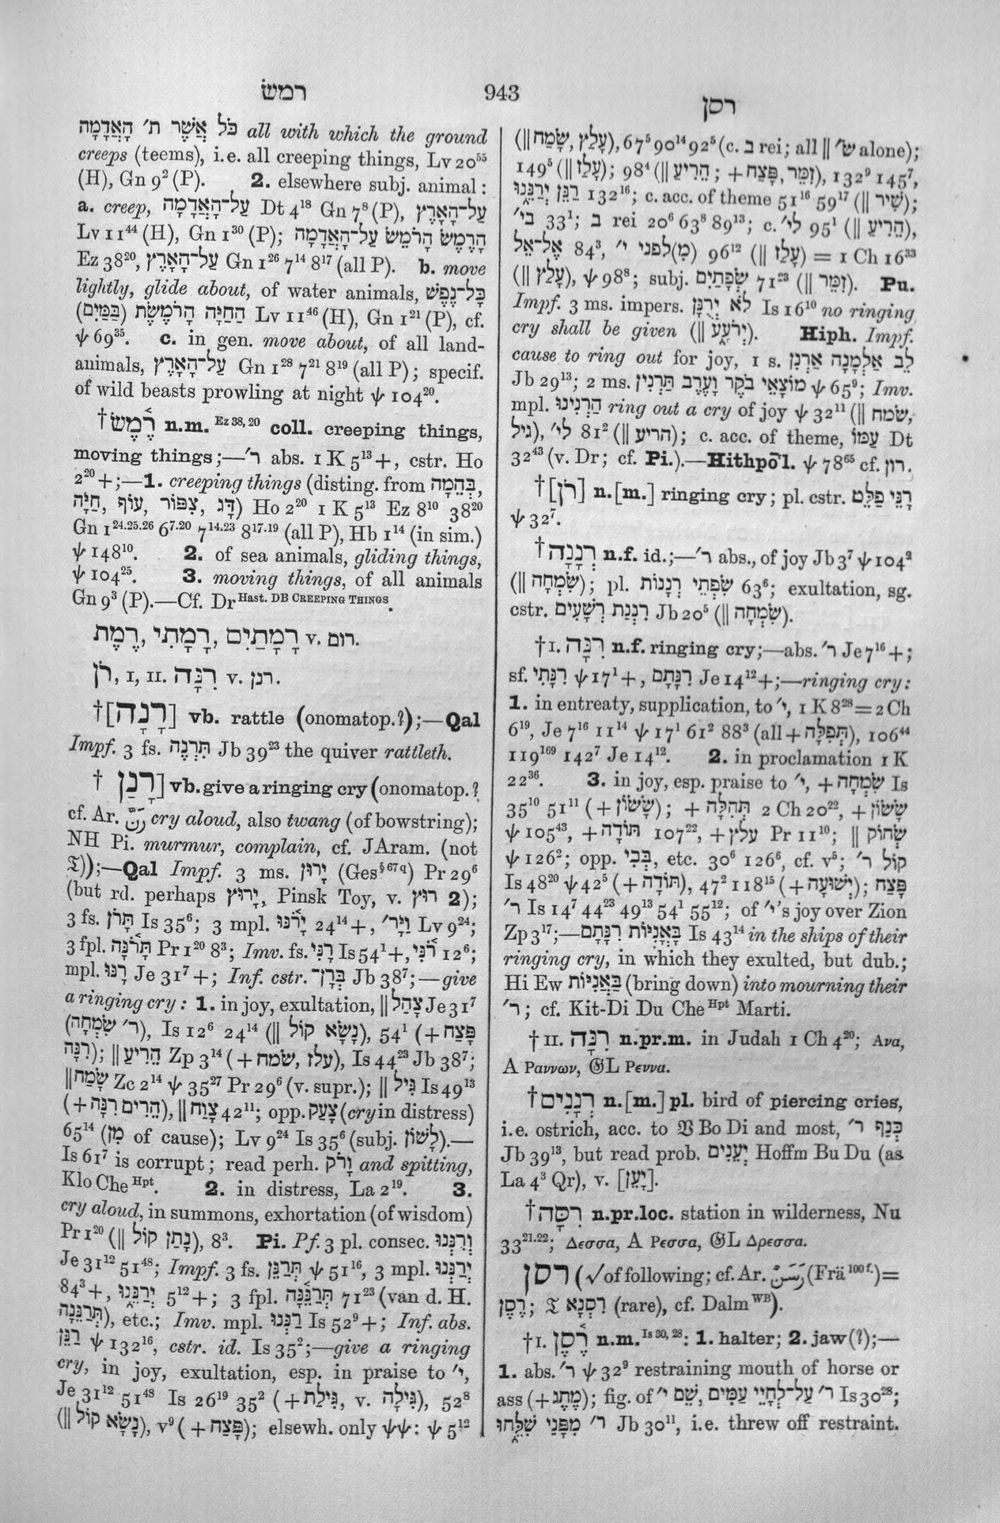 רמשׂ
943
רסן
כֹּל אֲשֶׁר ת׳ הָאֲדָמָה all with which the ground
creeps (teems), i.e. all creeping things, Lv 20
(H), Gn 9² (P). 2. elsewhere subj. animal :
a. creep, עַל־הָאֲדָמָה Dt 4¹⁸ Gn 7⁸ (P), עַל־הָאָרֶץ
Lv 11⁴⁴ (H), Gn 1³⁰ (P); הָרֶמֶשׂ הָרֹמֵשׂ עַל־הָאֲדָמָה
Ez 38²⁰, עַל־הָאָרֶץ Gn 1²⁶ 7¹⁴ 8¹⁷ (all P). b. move
lightly, glide about, of water animals, כָּל־נֶפֶשׁ
הַחַיָּה הָרֹמֶשֶׂת (בַּמַּיִם) Lv 11⁴⁶ (H), Gn 1²¹ (P), cf.
ψ 69³⁵. c. in gen. move about, of all land-
animals, עַל־הָאָרֶץ Gn 1²⁸ 7²¹ 8¹⁹ (all P); specif.
of wild beasts prowling at night ψ 104²⁰.
†רֶ֫מֶשׂ n.m. Ez 38, 20 coll. creeping things,
moving things;—ר׳ abs. 1 K 5¹³ +, cstr. Ho
2²⁰ +;—1. creeping things (disting. from בְּהֵמָה,
דָּג, צִפּוֹר, עוֹף, חַיָּה) Ho 2²⁰ 1 K 5¹³ Ez 8¹⁰ 38²⁰
Gn 1²⁴·²⁵·²⁶ 6⁷·²⁰ 7¹⁴·²³ 8¹⁷·¹⁹ (all P), Hb 1¹⁴ (in sim.)
ψ 148¹⁰. 2. of sea animals, gliding things,
ψ 104²⁵. 3. moving things, of all animals
Gn 9³ (P).—Cf. Dr Hast. DB CREEPING THINGS.
רָמָתַיִם, רָמָתִי, רֶמֶת v. רום.
רֹן, I, II. רִנָּה v. רנן.
†[רָנָה] vb. rattle (onomatop.?);—Qal
Impf. 3 fs. תִּרְנֶה Jb 39²³ the quiver rattleth.
†רָנַן] vb. give a ringing cry (onomatop.?
cf. Ar. رَنَّ cry aloud, also twang (of bowstring);
NH Pi. murmur, complain, cf. JAram. (not
𝔗));—Qal Impf. 3 ms. יָרוּן (Ges§67q) Pr 29⁶
(but rd. perhaps יָרוּץ, Pinsk Toy, v. רוץ 2);
3 fs. תָּרֹן Is 35⁶; 3 mpl. יָרֹנּוּ 24¹⁴ +, וַיָּר׳ Lv 9²⁴;
3 fpl. תָּרֹנָּה Pr 1²⁰ 8³; Imv. fs. רָנִּי Is 54¹ +, רֹנִּי 12⁶;
mpl. רָנּוּ Je 31⁷ +; Inf. cstr. בְּרָן־ Jb 38⁷;—give
a ringing cry : 1. in joy, exultation, ‖ צָהַל Je 31⁷
(ר׳ שִׂמְחָה), Is 12⁶ 24¹⁴ (‖ נָשָׂא קוֹל), 54¹ (+ פָּצַח
רִנָּה); ‖ הֵרִיעַ Zp 3¹⁴ (+ עלז, שׂמח), Is 44²³ Jb 38⁷;
‖ שָׂמַח Zc 2¹⁴ ψ 35²⁷ Pr 29⁶ (v. supr.); ‖ גִּיל Is 49¹³
(+ הֵרִים רִנָּה), ‖ צָוַח 42¹¹; opp. צָעַק (cry in distress)
65¹⁴ (מִן of cause); Lv 9²⁴ Is 35⁶ (subj. לָשׁוֹן).—
Is 61⁷ is corrupt; read perh. וָרֹק and spitting,
Klo Che Hpt. 2. in distress, La 2¹⁹. 3.
cry aloud, in summons, exhortation (of wisdom)
Pr 1²⁰ (‖ נָתַן קוֹל), 8³. Pi. Pf. 3 pl. consec. וְרִנְּנוּ
Je 31¹² 51⁴⁸; Impf. 3 fs. תְּרַנֵּן ψ 51¹⁶, 3 mpl. יְרַנְּנוּ
84³ +, יְרַנֵּנוּ 5¹² +; 3 fpl. תְּרַנֵּנָּה 71²³ (van d. H.
תְּרַנֵּנָה), etc.; Imv. mpl. רַנְּנוּ Is 52⁹ +; Inf. abs.
רַנֵּן ψ 132¹⁶, cstr. id. Is 35²;—give a ringing
cry, in joy, exultation, esp. in praise to י׳,
Je 31¹² 51⁴⁸ Is 26¹⁹ 35² (+ גִּילַת, v. גִּילָה), 52⁸
(‖ נָשָׂא קוֹל), v⁹ (+ פָּצַח); elsewh. only ψψ: ψ 5¹²
(‖ עָלַץ, שָׂמַח), 67⁵ 90¹⁴ 92⁵ (c. בְּ rei; all ‖ שׂ׳ alone);
149⁵ (‖ עָלַז); 98⁴ (‖ הֵרִיעַ; + זִמֵּר, פָּצַח), 132⁹ 145⁷,
רַנֵּן יְרַנֵּנוּ 132¹⁶; c. acc. of theme 51¹⁶ 59¹⁷ (‖ שִׁיר);
בי׳ 33¹; בְּ rei 20⁶ 63⁸ 89¹³; c. לי׳ 95¹ (‖ הֵרִיעַ),
אֶל־אֵל 84³, (מִ)לפני י׳ 96¹² (‖ עָלַז) = 1 Ch 16³³
(‖ עָלַץ), ψ 98⁸; subj. שְׂפָתַיִם 71²³ (‖ זִמֵּר). Pu.
Impf. 3 ms. impers. לֹא יְרֻנָּן Is 16¹⁰ no ringing
cry shall be given (‖ יְרֹעָע). Hiph. Impf.
cause to ring out for joy, 1 s. לֵב אַלְמָנָה אַרְנִן
Jb 29¹³; 2 ms. מוֹצָאֵי בֹקֶר וָעֶרֶב תַּרְנִין ψ 65⁹; Imv.
mpl. הַרְנִינוּ ring out a cry of joy ψ 32¹¹ (‖ שׂמח,
גיל), לי׳ 81² (‖ הריע); c. acc. of theme, עַמּוֹ Dt
32⁴³ (v. Dr; cf. Pi.).—Hithpōl. ψ 78⁶⁵ cf. רון.
†[רֹן] n.[m.] ringing cry; pl. cstr. רָנֵּי פַלֵּט
ψ 32⁷.
†רְנָנָה n.f. id.;—ר׳ abs., of joy Jb 3⁷ ψ 104²
(‖ שִׂמְחָה); pl. שִׂפְתֵי רְנָנוֹת 63⁶; exultation, sg.
cstr. רִנְנַת רְשָׁעִים Jb 20⁵ (‖ שִׂמְחָה).
†I. רִנָּה n.f. ringing cry;—abs. ר׳ Je 7¹⁶ +;
sf. רִנָּתִי ψ 17¹ +, רִנָּתָם Je 14¹² +;—ringing cry:
1. in entreaty, supplication, to י׳, 1 K 8²⁸ = 2 Ch
6¹⁹, Je 7¹⁶ 11¹⁴ ψ 17¹ 61² 88³ (all + תְּפִלָּה), 106⁴⁴
119¹⁶⁹ 142⁷ Je 14¹². 2. in proclamation 1 K
22³⁶. 3. in joy, esp. praise to י׳, + שִׂמְחָה Is
35¹⁰ 51¹¹ (+ שָׂשׂוֹן); + תְּהִלָּה 2 Ch 20²², + שָׂשׂוֹן
ψ 105⁴³, + תּוֹדָה 107²², + עלץ Pr 11¹⁰; ‖ שְׂחוֹק
ψ 126²; opp. בְּכִי, etc. 30⁶ 126⁶, cf. v⁵; קוֹל ר׳
Is 48²⁰ ψ 42⁵ (+ תּוֹדָה), 47² 118¹⁵ (+ יְשׁוּעָה); פָּצַח
ר׳ Is 14⁷ 44²³ 49¹³ 54¹ 55¹²; of י׳'s joy over Zion
Zp 3¹⁷;—בָּאֳנִיּוֹת רִנָּתָם Is 43¹⁴ in the ships of their
ringing cry, in which they exulted, but dub.;
Hi Ew בַּאֲנִיּוֹת (bring down) into mourning their
ר׳; cf. Kit-Di Du Che Hpt Marti.
†II. רִנָּה n.pr.m. in Judah 1 Ch 4²⁰; Ανα,
A Ραννων, 𝔊L Ρεννα.
†רְנָנִים n.[m.] pl. bird of piercing cries,
i.e. ostrich, acc. to 𝔙 Bo Di and most, כְּנַף ר׳
Jb 39¹³, but read prob. יְעֵנִים Hoffm Bu Du (as
La 4³ Qr), v. [יָעֵן].
†רִסָּה n.pr.loc. station in wilderness, Nu
33²¹·²²; Δεσσα, A Ρεσσα, 𝔊L Δρεσσα.
רסן (√ of following; cf. Ar. رَسَنٌ (Frä 100 f.) =
רֶסֶן; 𝔗 רִסְנָא (rare), cf. Dalm WB).
†I. רֶ֫סֶן n.m. Is 30, 28: 1. halter; 2. jaw(?);—
1. abs. ר׳ ψ 32⁹ restraining mouth of horse or
ass (+ מֶתֶג); fig. of י׳ שֵׁם, ר׳ עַל־לְחָיֵי עַמִּים Is 30²⁸;
ר׳ מִפָּנַי שִׁלֵּחוּ Jb 30¹¹, i.e. threw off restraint.